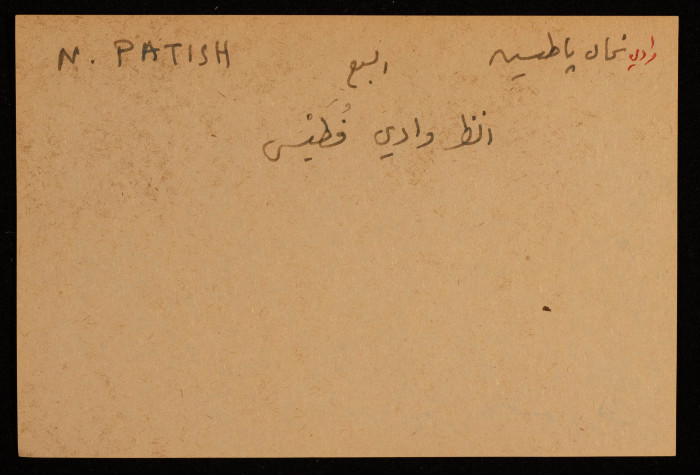 وادي نحال پاطيش السبع N. PATISH
انظر وادي فُطَيْس